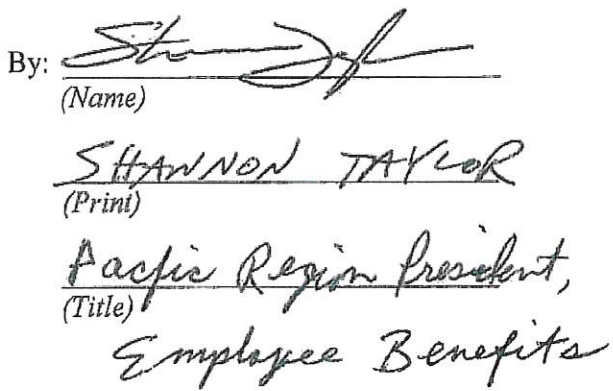 By:
(Name)
SHANNON TAYLOR
(Print)
Pacfic Region President,
(Title)
Employee Benefits